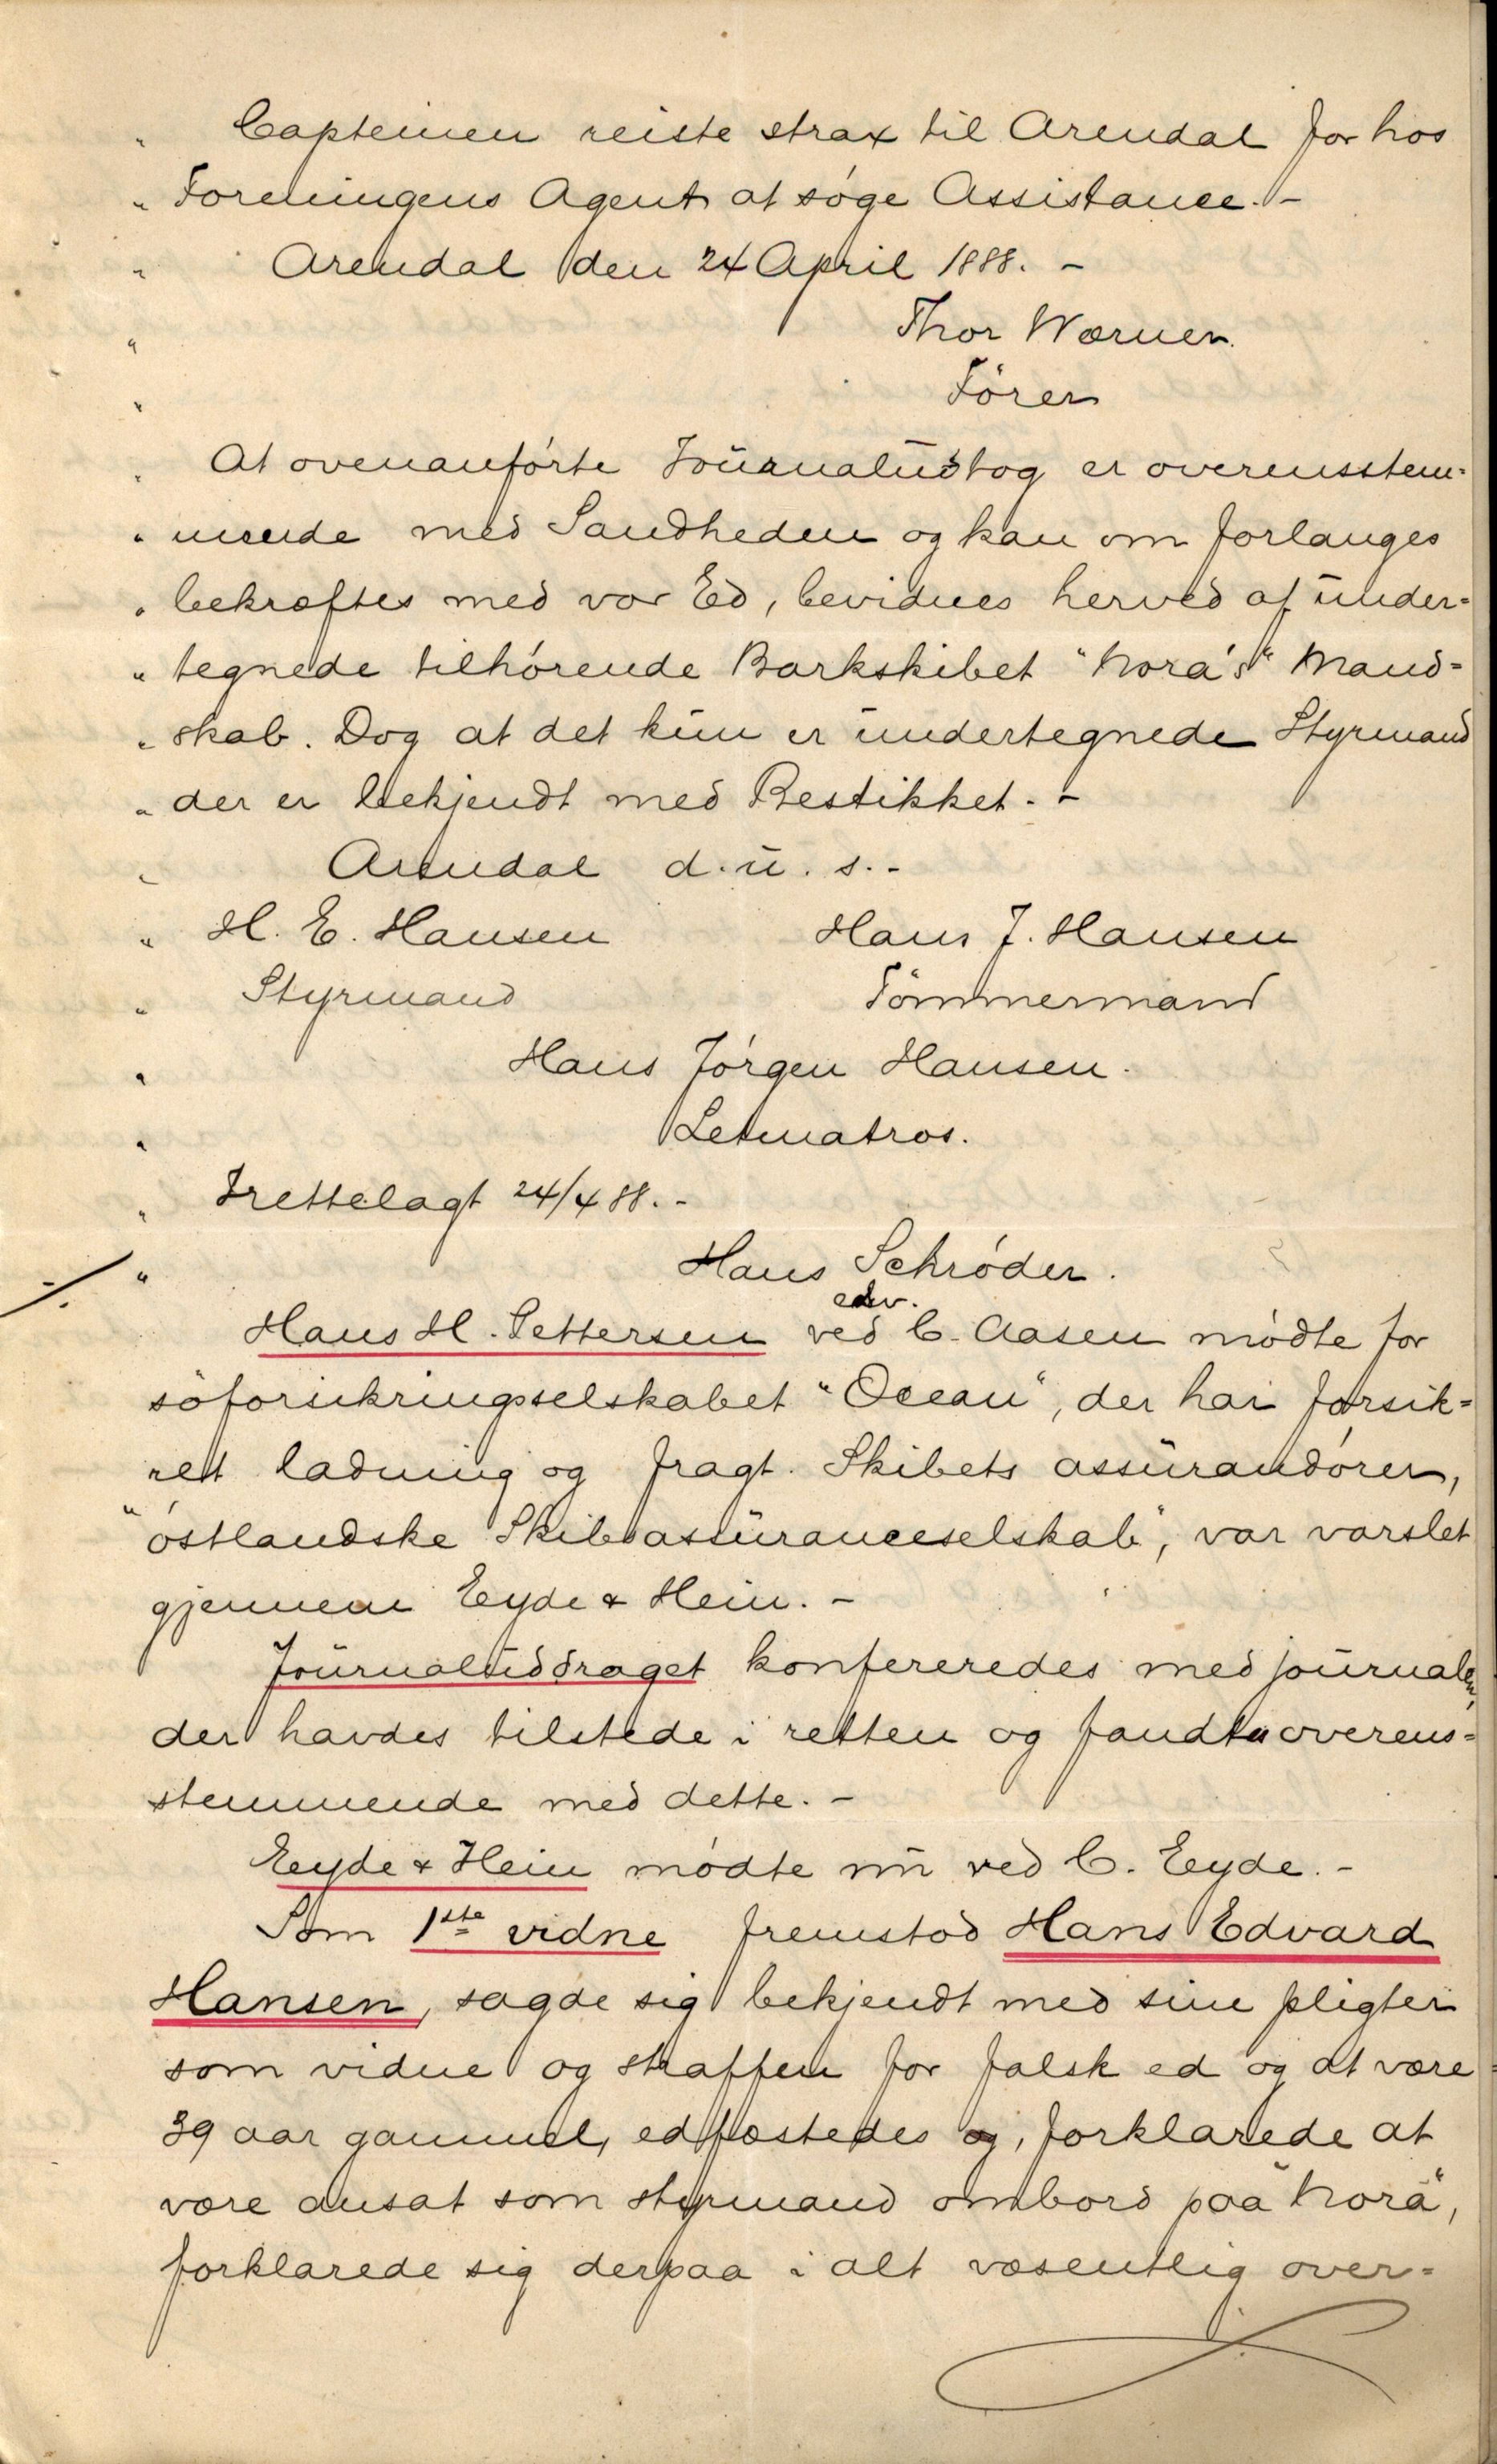 " Capteinen reiste strax til Arendal for hos
" Foreningens Agent at søge Assistance. -
" Arendal den 24 April 1888. -
" Thor Wærner.
" Fører
" At ovenanførte Journaludtog er overensstem=
" mende med Sandheden og kan om forlanges
" bekræftes med vor Ed, bevidnes herved af under=
" tegnede tilhørende Barkskibet "Nora's" Mand=
" skab. Dog at det kun er undertegnede Styrmand
" der er bekjendt med Bestikket. -
" Arendal d. u. s. -
" H. E. Hansen Hans J. Hansen
" Styrmand Tømmermand
" Hans Jørgen Hansen.
" Letmatros.
" Irettelagt 24/4 88. -
" Hans Schrøder.
edv.
Hans H. Pettersen ved C. Aasen mødte for
søforsikringsselskabet "Ocean", der har forsik=
ret ladning og fragt. Skibets assurandører,
"østlandske Skibsassuranceselskab", var varslet
gjennem Eyde & Hein. -
Journaluddraget konfereredes med journalen,
der havdes tilstede i retten og fandtes overens=
stemmende med dette. -
Eyde & Hein mødte nu ved C. Eyde. -
Som 1ste vidne fremstod Hans Edvard
Hansen, sagde sig bekjendt med sine pligter
som vidne og straffen for falsk ed og at være
39 aar gammel, edfæstedes og, forklarede at
være ansat som styrmand ombord paa "Nora",
forklarede sig derpaa i alt væsentlig over=